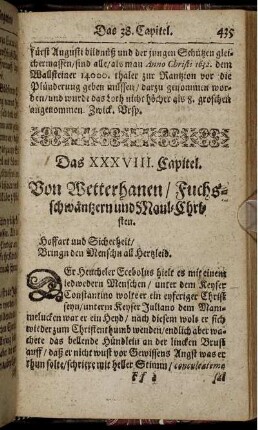 Das 38. Capitel. 435
Fürst Augusti bildnüß und der jungen Schützen glei-
chermassen/sind alle/als man Anno Christi 1632. dem
Wallsteiner 14000. thaler zur Rantzion vor die
Plünderung geben müssen/darzu genommen wor-
den/und wurde das Loth nicht höher als 8. groschen
angenommen. Zwick. Vesp.
Das XXXVIII. Capitel.
Von Wetterhanen/Fuchs-
schwäntzern und Maul-Chri-
sten.
Hoffart und Sicherheit/
Bringn den Menschn all Hertzleid.
DEr Heucheler Ecebolus hielt es mit einem
iedwedern Menschen/unter dem Keyser
Constantino wolte er ein eyferiger Christ
seyn/unterm Keyser Juliano dem Mam-
melucken war er ein Heyd/nach diesem wolt er sich
wieder zum Christenthumb wenden/endlich aber wa-
chete das bellende Hündlein an der lincken Brust
auff/daß er nicht wust vor Gewissens Angst was er
thun solte/schriee mit heller Stimm/conculcatemn
sal